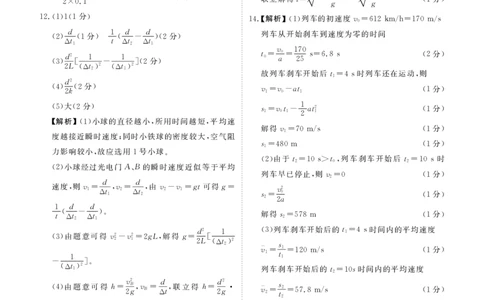 2×0.1
12.(1)1(1 分)
(2) d/Δt₁ (1 分) 1/t (d/Δt₂ − d/Δt₁)(2 分)
(3) d²/2L [1/(Δt₂)² − 1/(Δt₁)²](2 分)
(4) d²/2k (2 分)
(5)大(2 分)
【解析】(1)小球的直径越小,所用时间越短,平均速
度越接近瞬时速度;同时小铁球的密度较大,空气阻
力影响较小,故应选用 1 号球.
(2)小球经过光电门 A、B 的瞬时速度近似等于平均
速度,则 v₁ = d/Δt₁, v₂ = d/Δt₂, 由 v₂ − v₁ = gt 可得 g =
1/t (d/Δt₂ − d/Δt₁).
(3)由题意可得 v₂² − v₁² = 2gL, 解得 g = d²/2L [1/(Δt₂)²
− 1/(Δt₁)²].
(4)由题意可得 h = v_B²/2g, v_B = d/Δt, 联立得 h = d²/2g ·
14.【解析】(1)列车的初速度 v₀ = 612 km/h = 170 m/s
列车从开始刹车到速度为零的时间
t₀ = v₀/a = 170/25 s = 6.8 s (2 分)
故列车刹车开始后 t₁ = 4 s 时列车还在运动,则
v₁ = v₀ − at₁ (1 分)
s₁ = v₀t₁ − 1/2 at₁² (1 分)
解得 v₁ = 70 m/s (1 分)
s₁ = 480 m (1 分)
(2)由于 t₂ = 10 s > t₀, 列车刹车开始后 t₂ = 10 s 时
列车早已停止,则 v₂ = 0 (1 分)
s₂ = v₀²/2a (1 分)
解得 s₂ = 578 m (1 分)
(3)列车刹车开始后的 t₁ = 4 s 时间内的平均速度
v̄₁ = s₁/t₁ = 120 m/s (1 分)
列车刹车开始后的 t₂ = 10s 时间内的平均速度
v̄₂ = s₂/t₂ = 57.8 m/s (1 分)